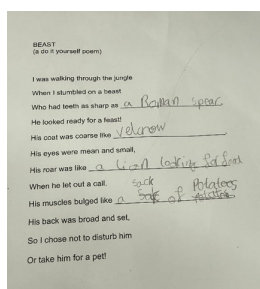 BEAST
(a do it yourself poem)
I was walking through the jungle
When I stumbled on a beast
Who had teeth as sharp as a Roman spear
He looked ready for a feast!
His coat was coarse like velcrow
His eyes were mean and small,
His roar was like a lion looking for food
When he let out a call.
His muscles bulged like a sack of Potatoes
His back was broad and set,
So I chose not to disturb him
Or take him for a pet!